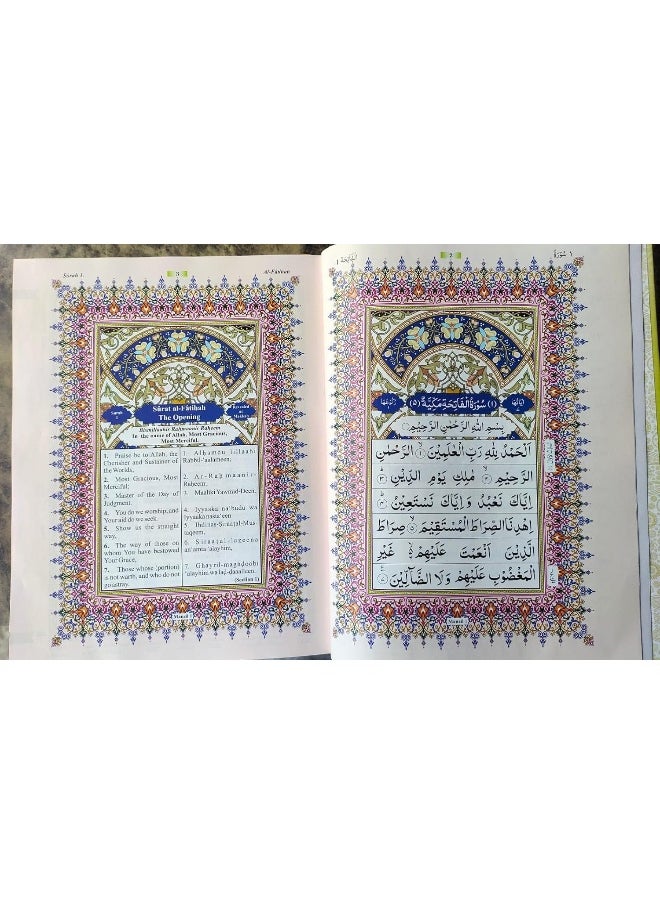 Sūrah 1.
3
Al-Fātihah
Sūrah
Sūrat al-Fātihah
The Opening
Revealed
Bismillaahir Rahmaanir Raheem
In the name of Allah, Most Gracious,
Most Merciful.
1. Praise be to Allah, the
Cherisher and Sustainer of
the Worlds,
2. Most Gracious, Most
Merciful;
3. Master of the Day of
Judgment.
4. You do we worship, and
Your aid do we seek.
5. Show us the straight
way,
6. The way of those on
whom You have bestowed
Your Grace,
7. Those whose (portion)
is not wrath, and who do not
go astray.
1. Alhamdu lillaahi
Rabbil-'aalameen.
2. Ar-Rahmaanir-
Raheem.
3. Maaliki Yawmid-Deen.
4. Iyyaaka na'budu wa
iyyaaka nasta'een.
5. Ihdinas-Siraatal-Mus
taqeem.
6. Siraatal-lazeena
an'amta 'alayhim,
7. Ghayril-maghdoobi
'alayhim wa lad-daaalleen.
(Section 1)
Manzil 1
2
سُوْرَةُ ١
(١) سُوْرَةُ الْفَاتِحَةِ مَكِّيَّةٌ (٥)
بِسْمِ اللّٰهِ الرَّحْمٰنِ الرَّحِيْمِ
اَلْحَمْدُ لِلّٰهِ رَبِّ الْعٰلَمِيْنَ ١ الرَّحْمٰنِ
الرَّحِيْمِ ٢ مٰلِكِ يَوْمِ الدِّيْنِ ٣
اِيَّاكَ نَعْبُدُ وَاِيَّاكَ نَسْتَعِيْنُ ٤
اِهْدِنَا الصِّرَاطَ الْمُسْتَقِيْمَ ٥ صِرَاطَ
الَّذِيْنَ اَنْعَمْتَ عَلَيْهِمْ ٦ غَيْرِ
الْمَغْضُوْبِ عَلَيْهِمْ وَلَا الضَّآلِّيْنَ
Manzil 1